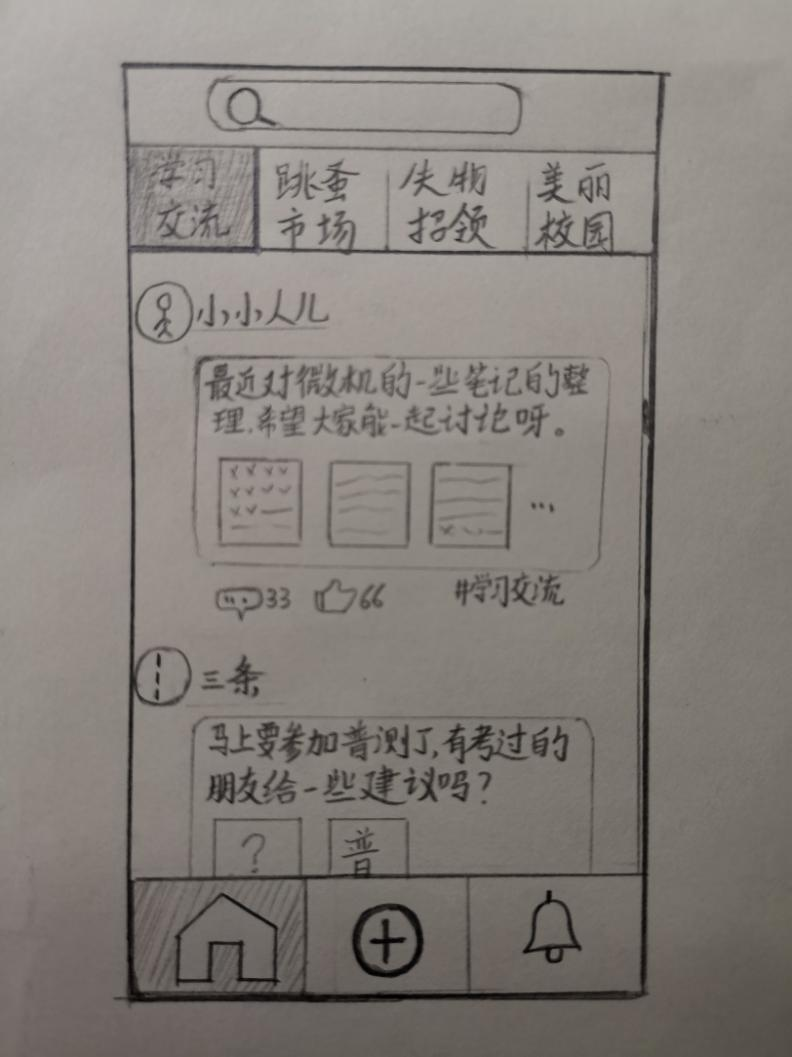 学习
交流
跳蚤
市场
失物
招领
美丽
校园
小小人儿
最近对微机的一些笔记的整
理,希望大家能一起讨论呀。
...
33
66
#学习交流
三条
马上要参加普测了,有考过的
朋友给一些建议吗?
?
普